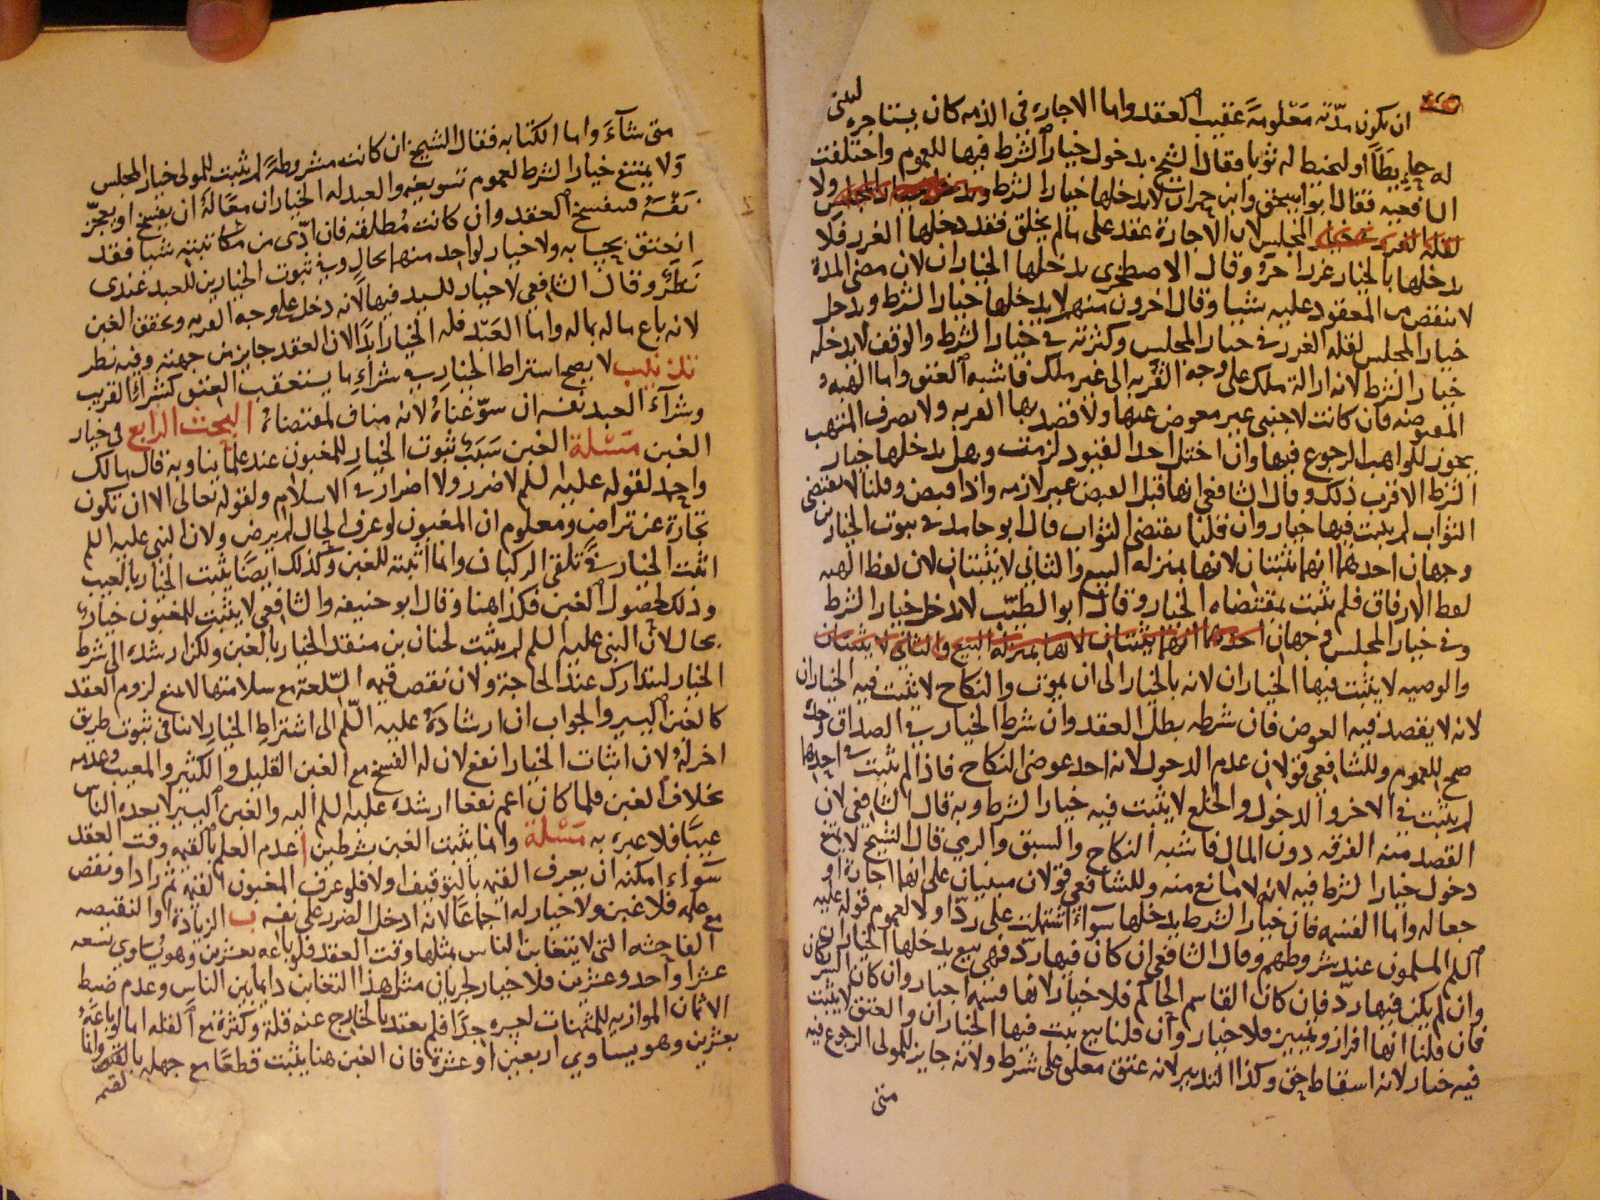 ان تكون مدّته معلومة عقيب العقد واما الاجاره في الذمه كان يستاجره ليبنى
له حايطاً او ليخيط له ثوبا فقال الشيخ بدخول خيار الشرط فيها للعموم واختلفت
الشافعيه فقال ابوا اسحق وابن خيران لا يدخلها خيار الشرط ولا
المجلس لان الاجارة عقد على ما لم يخلق فقد دخلها الغرر فلا
يدخلها بالخيار غرر اخر وقال الاصطخري يدخلها الخياران لان مضى المدة
لا ينقص من المعقود عليه شيا وقال اخرون منهم لا يدخلها خيار الشرط ويدخل
خيار المجلس لقله الغرر في خيار المجلس وكثرته في خيار الشرط والوقف لا يدخله
خيار الشرط لانه ازالة ملك على وجه القربه الى غير ملك فاشبه العتق واما الهبه
المقبوضه فان كانت لاجنبي غير معوض عنها ولا قصد بها القربه ولا تصرف المتهب
يجوز للواهب الرجوع فيها وان اختل احد القيود لزمت وهل يدخلها خيار
الشرط الاقرب ذلك وقال الشافعي انها قبل القبض غير لازمه واذا قبض وقلنا لا يقتضى
الثواب لم يثبت فيها خيار وان قلنا يقتضى الثواب قال ابو حامد في ثبوت الخيارين
وجهان احدهما انهما يثبتان لانها بمنزله البيع والثاني لا يثبتان لان لفظ الهبه
لفظ الارفاق فلم يثبت بمقتضاه الخيار وقال ابو الطيّب لا يدخل خيار الشرط
وفي خيار المجلس وجهان احدهما انهما يثبتان لانها بمنزلة البيع والثاني لا يثبتان
والوصيه لا يثبت فيها الخياران لانه بالخيار الى ان يموت والنكاح لا يثبت فيه الخياران
لانه لا يقصد فيه العوض فان شرطه بطل العقد وان شرط الخيار في الصداق وحده
صح للعموم وللشافعي قولان عدم الدخول لانه احد عوضى النكاح فاذا لم يثبت في احدهما
لم يثبت في الاخر والدخول والخلع لا يثبت فيه خيار الشرط وبه قال الشافعي لان
القصد منه الفرقه دون المال فاشبه النكاح والسبق والرمي قال الشيخ لا يمنع
دخول خيار الشرط فيه لانه لا مانع منه وللشافعي قولان مبنيان على انها اجارة او
جعاله واما القسمه فان خيار الشرط يدخلها سواءً اشتملت على ردّ او لا لعموم قوله عليه
السلم المسلمون عند شروطهم وقال الشافعي ان كان فيها ردّ فهي بيع يدخلها الخياران
وان لم يكن فيها ردّ فان كان القاسم الحاكم فلا خيار لانها قسمه اجبار وان كان الشريكان
فان قلنا انها افراز وتمييز فلا خيار وان قلنا بيع يثبت فيها الخياران والعتق لا يثبت
فيه خيار لانه اسقاط حق وكذا التدبير لانه عتق معلق على شرط ولانه جايز للمولى الرجوع فيه
متى
متى شاءَ واما الكتابه فقال الشيخ ان كانت مشروطةً لم يثبت للمولى خيار المجلس
وَلا يمتنع خيار الشرط لعموم تسويغه والعبد له الخياران معًا لهُ ان يفسخ او يعجّز
نفسَهُ فينفسخ العقد وان كانت مُطلقه فان ادّى من مكاتبته شيا فقد
انعتق بحسابه ولا خيار لواحد منهما بحال وفي ثبوت الخيارين للعبد عندى
نَظرٌ وقال الشافعي لا خيار للسيد فيها لانه دخل على وجه القربه وتحقق الغبن
لانه باع ماله بماله واما العَبد فله الخيار ابدًا لان العقد جايز من جهته وفيه نظر
تذنيب لا يصح اشتراط الخيار في شراءِ ما يستعقب العتق كشراءِ القريب
وشراءَ العبد نفسه ان سوّغناهُ لانهُ مناف لمقتضاهُ البحث الرابع في خيار
الغبن مَسْئلة الغبن سَبَبُ ثبوت الخيار للمغبون عند علماينا وبه قال مالك
واحمد لقوله عليه السلم لا ضرر ولا اضرار في الاسلام ولقوله تعالى الا ان تكون
تجارة عن تراض ومعلوم ان المغبون لو عرف الحال لم يرض ولان النبي عليه السلم
اثبت الخيار في تلقى الركبان وانما اثبته للغبن وكذلك ايضًا يثبت الخيار بالعيب
وذلك لحصول الغبن فكذا هنا وقال ابو حنيفه والشافعي لا يثبت للمغبون خيارٌ
بحال لانّ النبي عليه السلم لم يثبت لحنان بن منقذ الخيار بالغبن ولكن ارشده الى شرط
الخيار ليتدارك عند الحاجة ولان نقص قيمه السّلعة مع سلامتها لا يمنع لزوم العقد
كالغبن اليسير والجواب ان ارشادَهُ عليه السّلم الى اشتراط الخيار لا ينافي ثبوت طريق
اخر لهُ لان اثبات الخيار انفع لان له الفسخ مع الغبن القليل والكثير والمعيب وعدمه
بخلاف الغبن فلما كان اعم نفعا ارشده عليه السلم اليه والغبن اليسير لا يعده الناس
عيبًا فلا عبره به مَسْئلة وانما يثبت الغبن بشرطين ا عدم العلم بالقيمه وقت العقد
سَوَاءٌ امكنه ان يعرف القيمه بالتوقيف او لا فلو عرف المغبون القيمه ثم زاد او نقص
مع علمه فلا غبن ولا خيار له اجماعًا لانه ادخل الضرر على نفسه ب الزيادة او النقيصه
الفاحشه التي لا يتغابن الناس بمثلها وقت العقد فلو باعه بعشرين وهو يُساوي تسعه
عشر او احد وعشرين فلا خيار لجريان مثل هذا التغابن دايما بين الناس وعدم ضبط
الاثمان الموازيه للمثمنات لعسره جدًا فلم يعتد بالخارج عنه قلة وكثرة مع القله اما لو باعَهُ
بعشرين وهو يساوي اربعين او عشرة فان الغبن هنا يثبت قطعًا مع جهله بالقيمه وانما